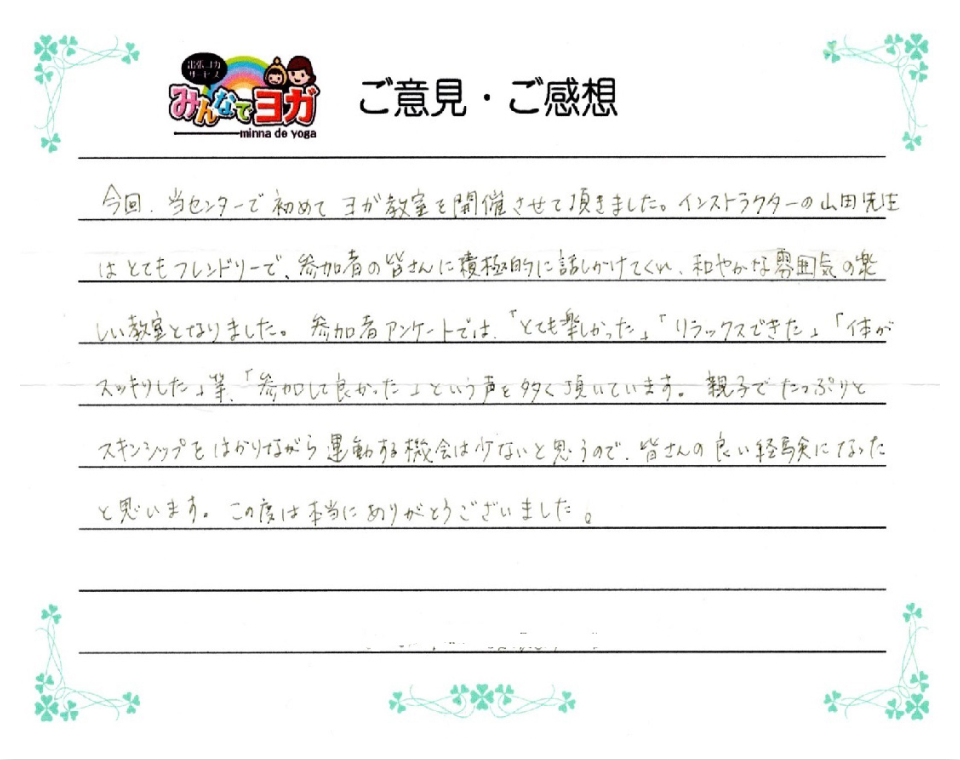 出張ヨガ
サービス
みんなでヨガ
minna de yoga
ご意見・ご感想
今回、当センターで初めてヨガ教室を開催させて頂きました。インストラクターの山田先生
はとてもフレンドリーで、参加者の皆さんに積極的に話しかけてくれ、和やかな雰囲気の楽
しい教室となりました。参加者アンケートでは、「とても楽しかった」「リラックスできた」「体が
スッキリした」等、「参加して良かった」という声を多く頂いています。親子でたっぷりと
スキンシップをはかりながら運動する機会は少ないと思うので、皆さんの良い経験になった
と思います。この度は本当にありがとうございました。